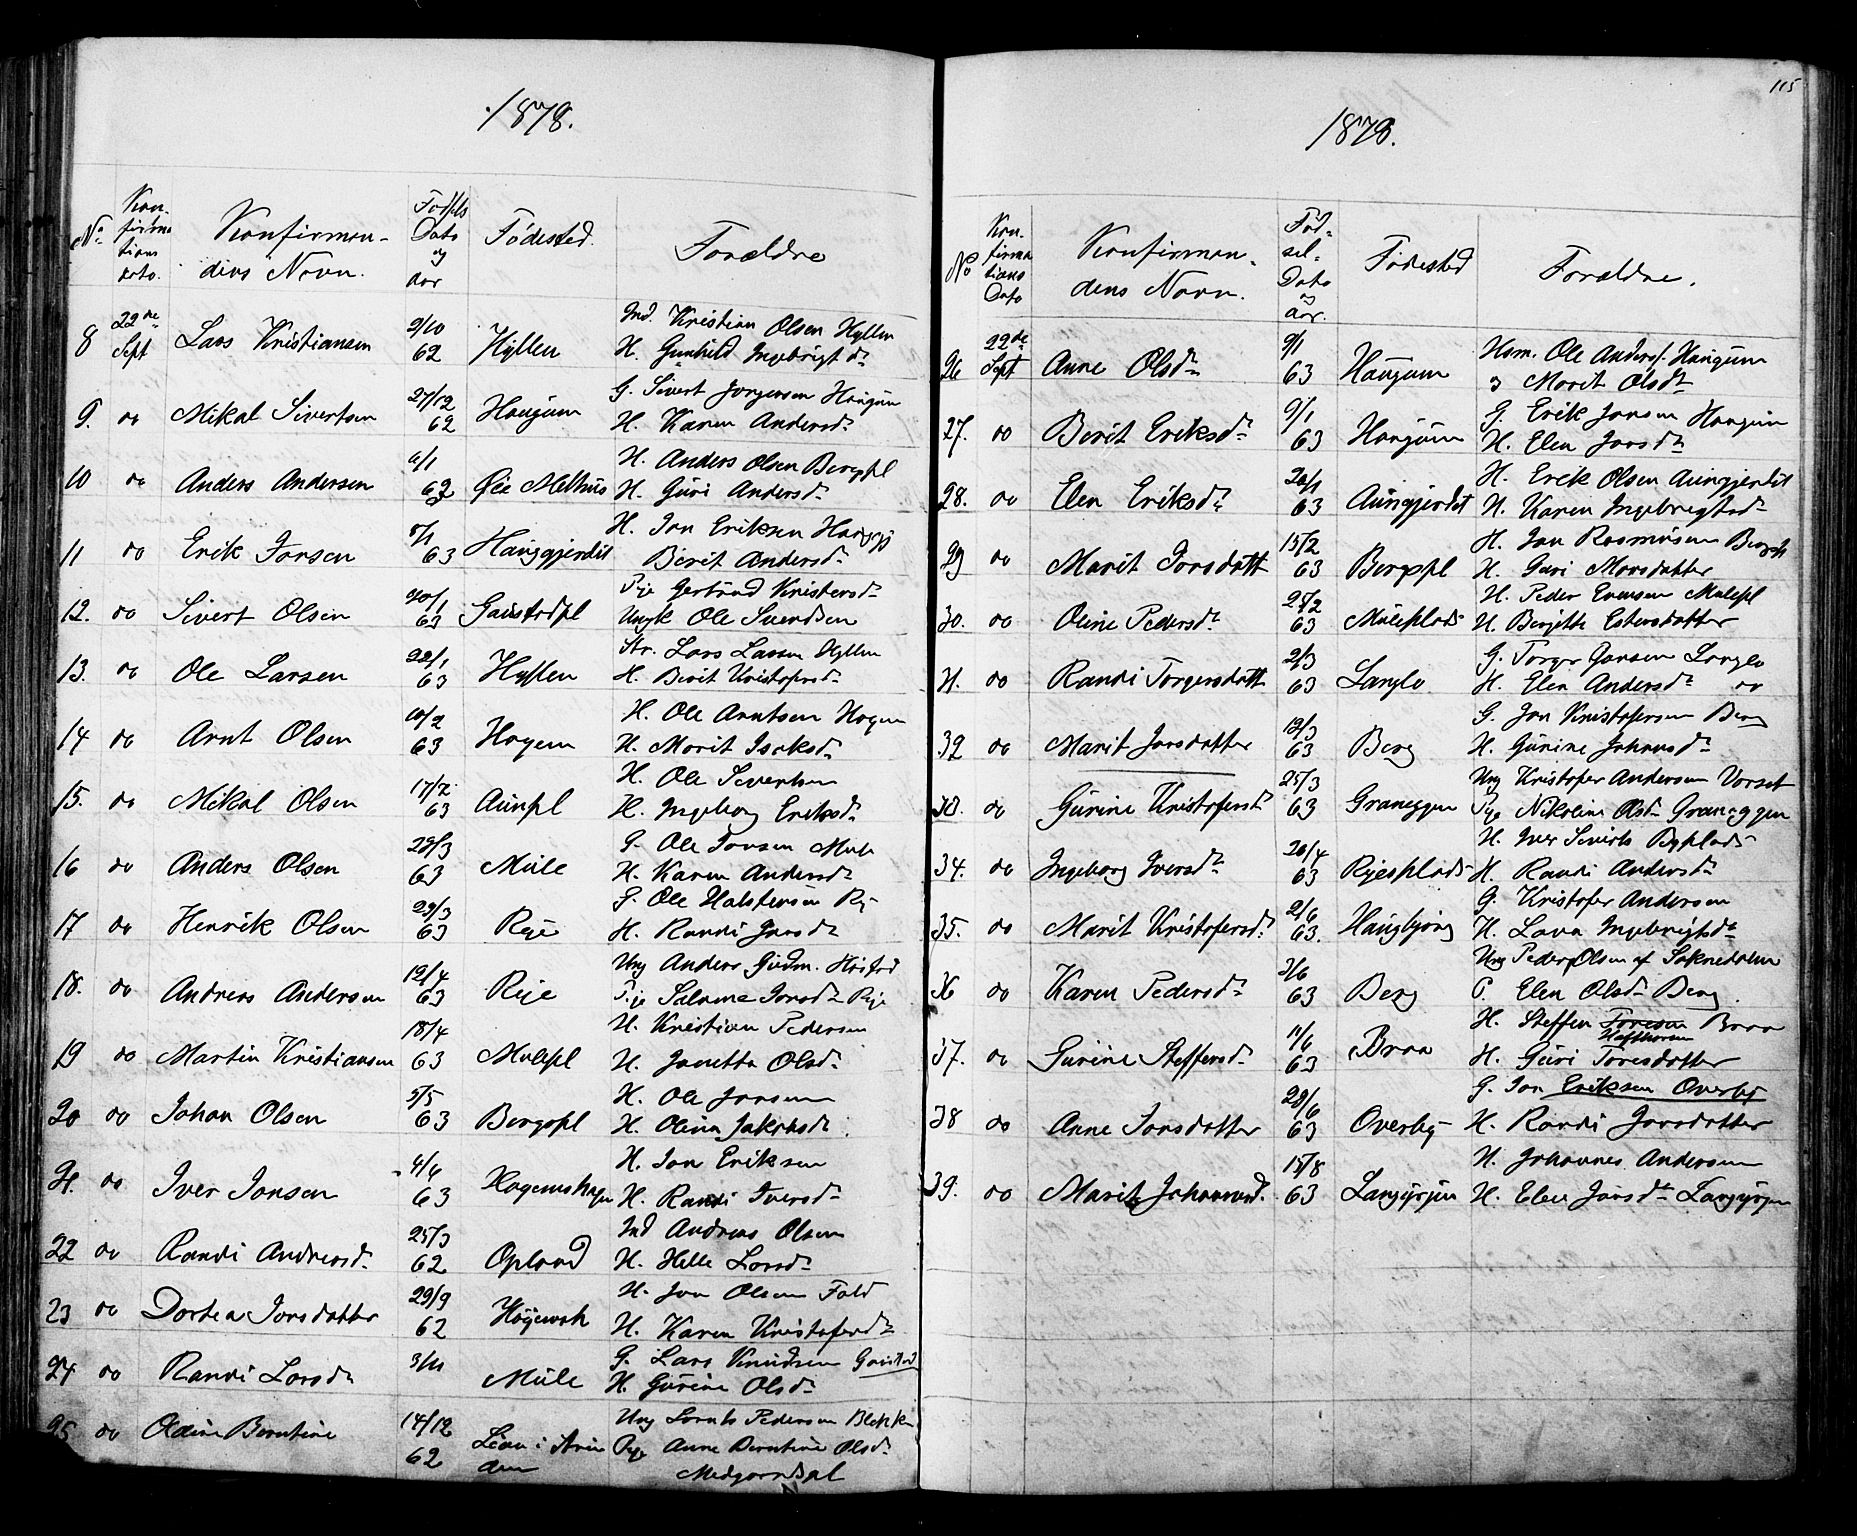 1878.
No Kon-firma-tions dato. Konfirman-dens Navn. Fødsels Dato og Aar Fødested. Forældre
8 22de Sept Lars Kristiansen 9/10 62 Hyllen Ind. Kristian Olsen Hyllen
H. Gunhild Ingebrigtdr
9. do Mikal Sivertsen 27/12 62 Haugum G. Sivert Jørgensen Haugum
H. Karen Andersdr
10 do Anders Andersen 6/1 62 Øie Melhus H. Anders Olsen Bergpl
H. Guri Andersdr
11 do Erik Jonsen 8/1 63 Hauggjerdet H. Jon Eriksen Hauggj
Berit Andersdr
12. do Sivert Olsen 20/1 63 Gaustadpl Pige Gertrud Kristensdr
Ungk Ole Svendsen
13. do Ole Larsen 22/1 63 Hyllen Str. Lars Larsen Hyllen
H. Berit Kristofersdr
14 do Arnt Olsen 10/2 63 Hagen H. Ole Arntsen Hagen
H. Marit Isaksdr
15. do Mikal Olsen 17/2 63 Aunpl H. Ole Sivertsen
H. Ingeborg Eriksdr
16 do Anders Olsen 28/3 63 Mule G. Ole Jonsen Mule
H. Karen Andersdr
17 do Henrik Olsen 29/3 63 Rye G. Ole Halstensen Ry
H. Randi Jonsdr
18. do Andreas Andersen 12/4 63 Rye Ung Anders Gudm. Høstad
Pige Salome Jonsdr Rye
19 do Martin Kristiansen 18/4 63 Mulepl H. Kristian Pedersen
H. Janetta Olsdr
20 do Johan Olsen 5/5 63 Bergspl H. Ole Jonsen
H. Olina Jakobsdr
21. do Iver Jonsen 4/6 63 H. Jon Eriksen
H. Randi Iversdr
22 do Randi Andreasdr 25/3 62 Opland Ind Andreas Olsen
H. Helle Larsdr
23 do Dortea Jonsdatter 29/9 62 H. Jon Olsen Fald
H. Karen Kristofersdr
24 do Randi Larsdr 3/11 Mule G. Lars Knudsen Gaustad
H. Gurine Olsdr
25 do Oldine Berntine 14/12 62 Leren i Strinden Ung Lornts Pedersen
Pige Anne Berntine Olsdr
115
1878.
No Kon-firma-tions Dato Konfirman-dens Navn. Fød-sel-Dato og aar. Fødested Forældre.
26 22de Sept Anne Olsdr 9/1 63 Haugum Hsm. Ole Anders. Haugum
og Marit Olsdr
27. do Berit Eriksdr 9/1 63 Haugum G. Erik Jonsen Haugum
H. Elen Jonsdr
28. do Elen Eriksdr 26/1 63 Aungjerdet H. Erik Olsen Aungjerdet
H. Karen Ingebrigtsdr
29 do Marit Jonsdatt 15/2 63 Bergpl H. Jon Rasmusen Bergpl
H. Guri Larsdatter
30. do Oline Pedersdr 25/2 63 Muleplads H. Peder Evensen Mulepl
H. Bergitte Estensdatter
31. do Randi Torgersdatt 2/3 63 Langlo G. Torger Jonsen Langlo
H. Elen Andersdr do
32 do Marit Jonsdatter 12/3 63 Berg G. Jon Kristofersen Berg
H. Gurine Johansdr
33. do Gurine Kristofersdr 25/3 63 Graneggen Ung Kristofer Andersen Vorset
Pige Nikoline Olsdr Graneggen
34. do Ingeborg Iversdr 26/4 63 Ryesplads H. Iver Siverts Ryplads
H. Randi Andersdr
35. do Marit Kristofersdr. 2/6 63. Haugbjørg G. Kristofer Andersen
H. Lava Ingebrigtsdr
36 do Karen Pedersdr 3/6 63 Berg Ung Peder Olsen af Soknedalen
P. Elen Olsdr Berg.
37. do Gurine Steffensdr 11/6 63 Braa H. Steffen Toresen Braa
Hafthorsen
H. Guri Toresdatter
38 do Anne Jonsdatter 28/6 63 Overby G. Jon Eriksen Overby
H. Randi Jonsdatter
39. do Marit Johannesd. 15/8 63 Langørjen H. Johannes Andersen
H. Elen Jonsdr Langørjen